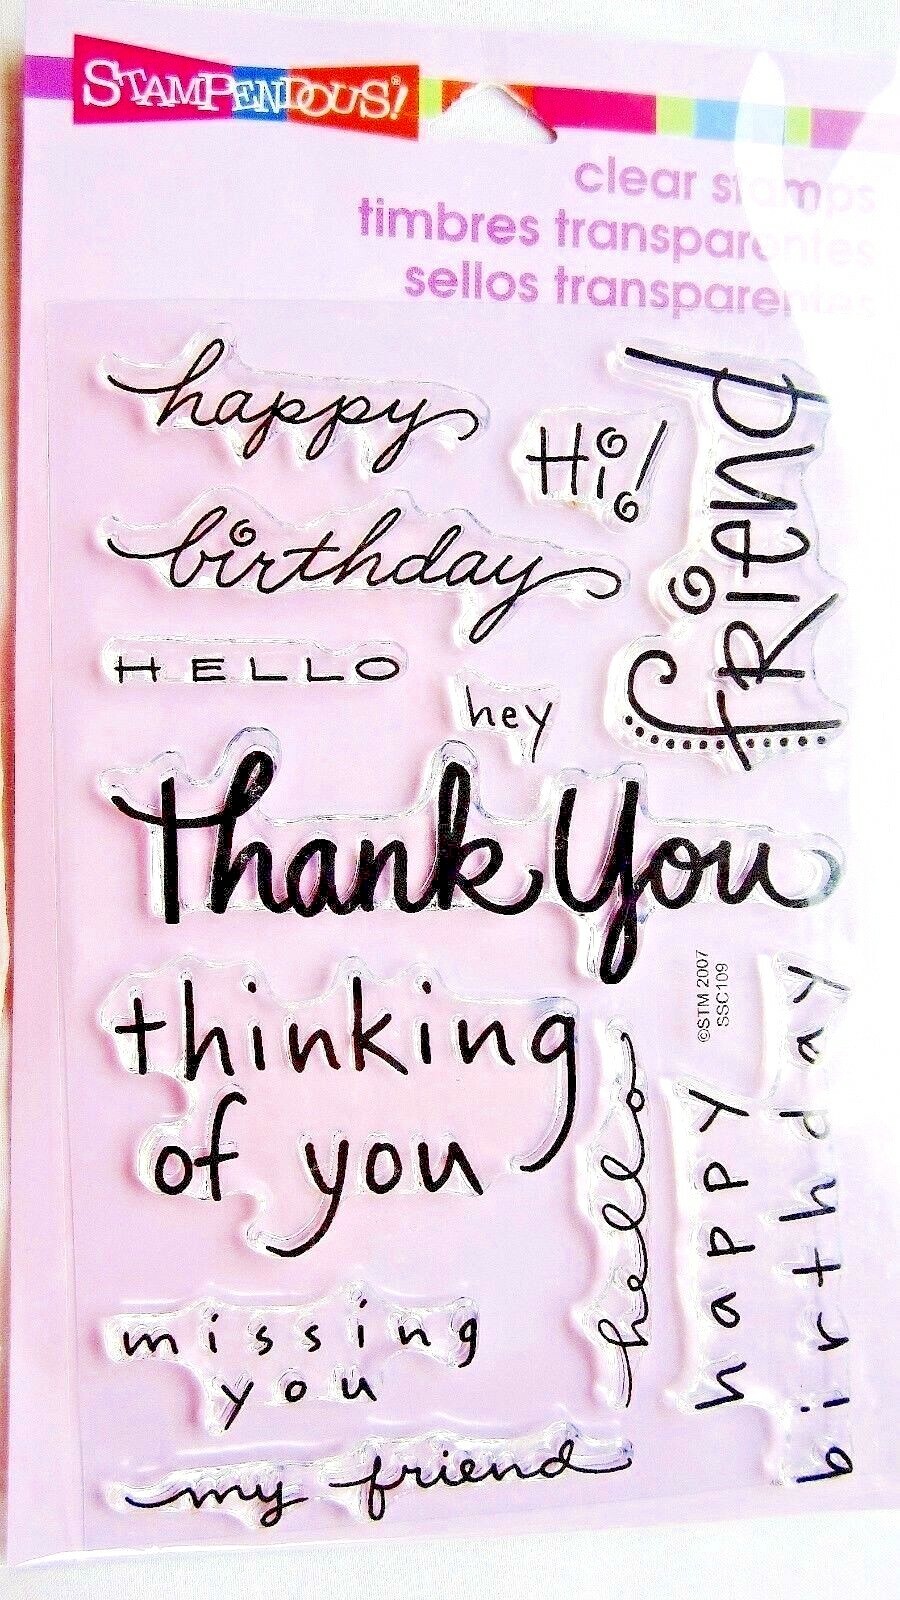 STAMPENDOUS!®
clear stamps
timbres transparentes
sellos transparentes
happy
Hi!
friend
birthday
HELLO
hey
Thank You
©STM 2007
SSC109
thinking
of you
hello
happy
birthday
missing
you
my friend